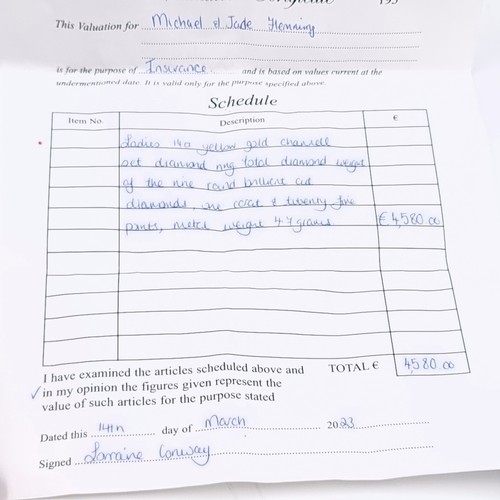 Certificate 193
This Valuation for Michael & Jade Henning
is for the purpose of Insurance and is based on values current at the
undermentioned date. It is valid only for the purpose specified above.
Schedule
Item No. Description €
Ladies 14ct yellow gold channell
set diamond ring total diamond weight
of the nine round brilliant cut
diamonds, one carat & twenty five
points, metal weight 4.7 grams €4,580.00
I have examined the articles scheduled above and TOTAL € 4580.00
in my opinion the figures given represent the
value of such articles for the purpose stated
Dated this 14th day of March 2023
Signed Lorraine Conway